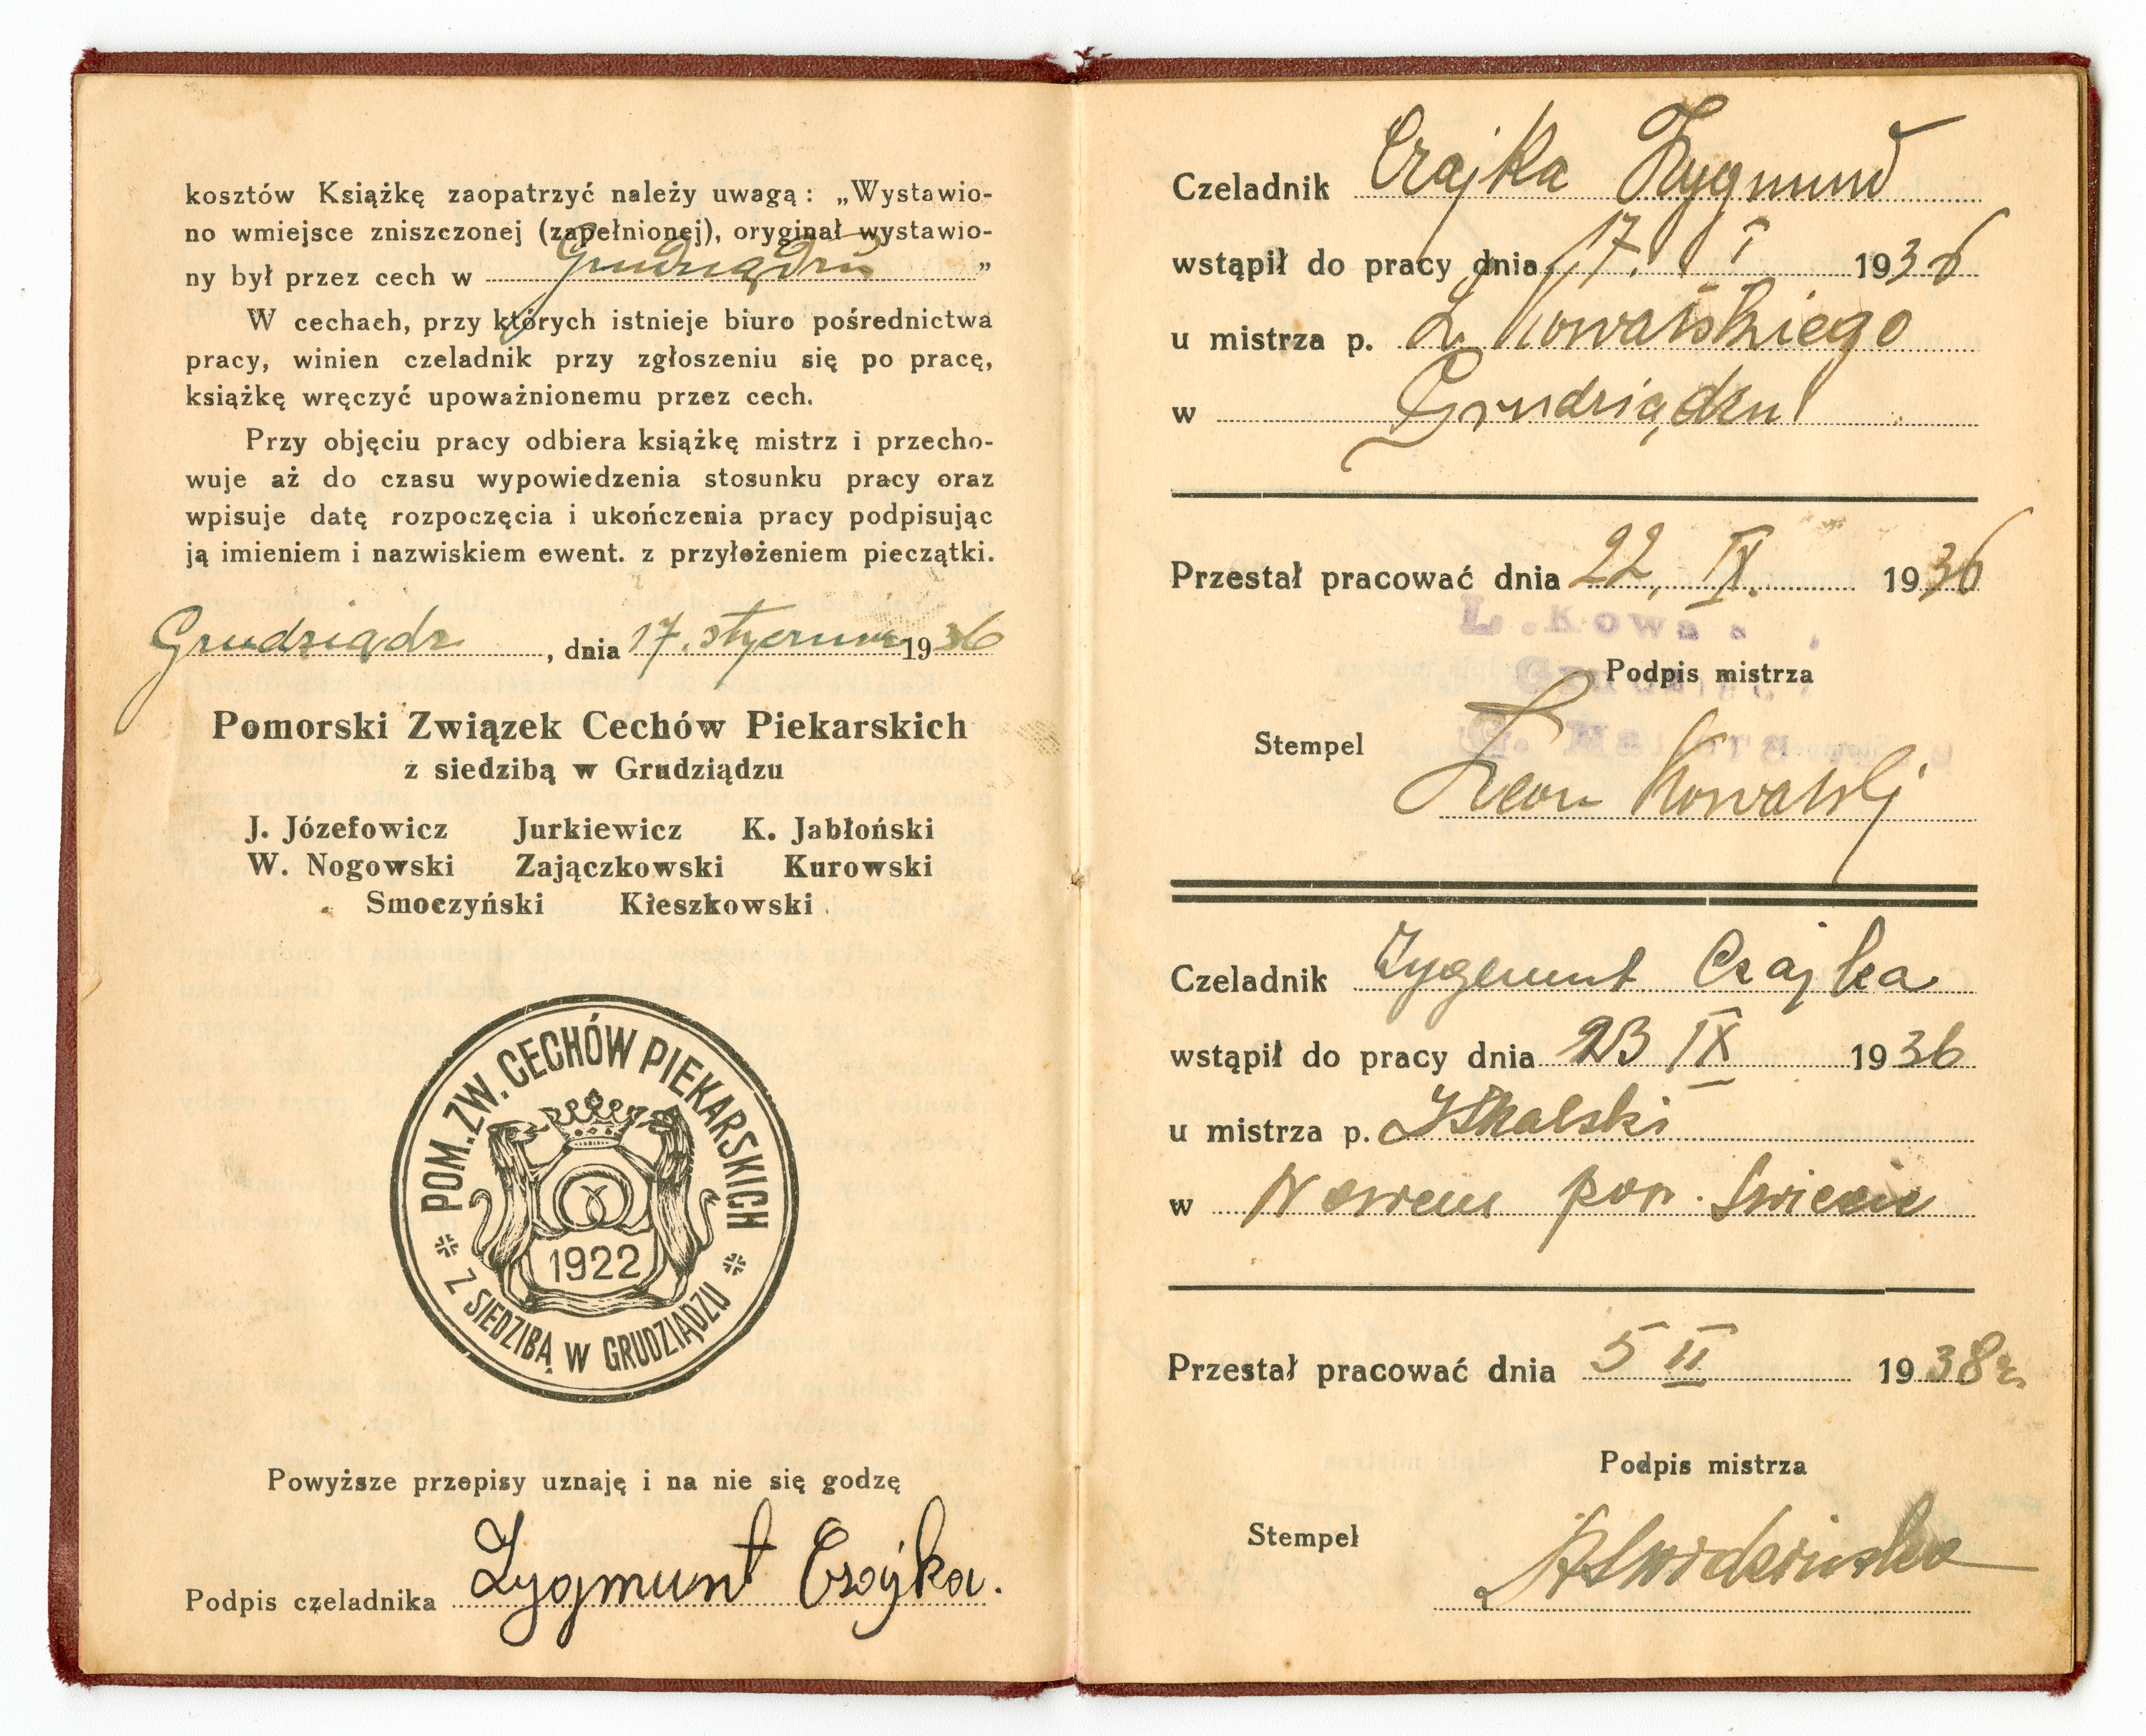 kosztów Książkę zaopatrzyć należy uwagą: „Wystawio-
no wmiejsce zniszczonej (zapełnionej), oryginał wystawio-
ny był przez cech w Grudziądzu "
W cechach, przy których istnieje biuro pośrednictwa
pracy, winien czeladnik przy zgłoszeniu się po pracę,
książkę wręczyć upoważnionemu przez cech.
Przy objęciu pracy odbiera książkę mistrz i przecho-
wuje aż do czasu wypowiedzenia stosunku pracy oraz
wpisuje datę rozpoczęcia i ukończenia pracy podpisując
ją imieniem i nazwiskiem ewent. z przyłożeniem pieczątki.
Grudziądz, dnia 17. stycznia 1936
Pomorski Związek Cechów Piekarskich
z siedzibą w Grudziądzu
J. Józefowicz Jurkiewicz K. Jabłoński
W. Nogowski Zajączkowski Kurowski
Smoczyński Kieszkowski
POM. ZW. CECHÓW PIEKARSKICH
1922
Z SIEDZIBĄ W GRUDZIĄDZU
Powyższe przepisy uznaję i na nie się godzę
Podpis czeladnika Zygmunt Czajka.
Czeladnik Czajka Zygmund
wstąpił do pracy dnia 17. I 1936
u mistrza p. L. Kowalskiego
w Grudziądzu
Przestał pracować dnia 22. IX. 1936
L. Kowa
Podpis mistrza
Stempel
Leon Kowalski
Czeladnik Zygmunt Czajka
wstąpił do pracy dnia 23 IX 1936
u mistrza p.
w Nowem pow. Swiecie
Przestał pracować dnia 5 II 1938 r.
Podpis mistrza
Stempel